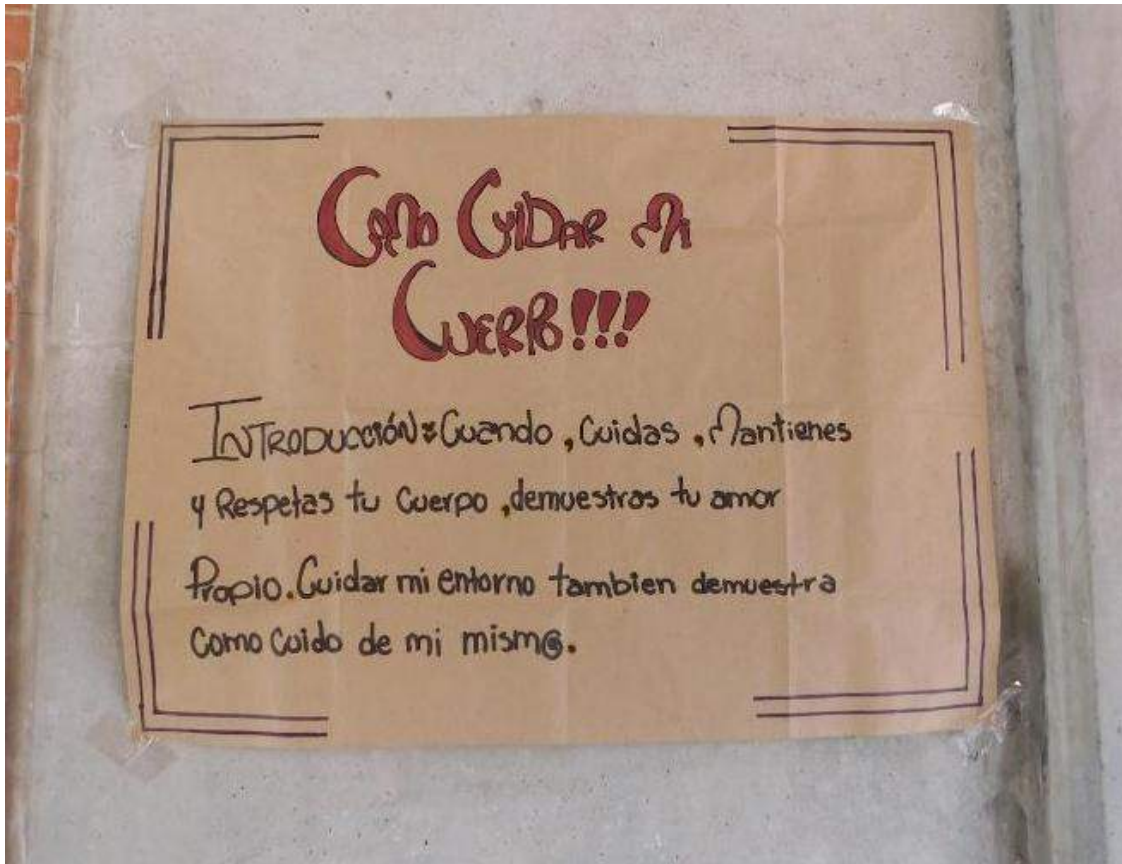 Como Cuidar mi
Cuerpo!!!
INTRODUCCIÓN: Cuando, Cuidas, Mantienes
y Respetas tu Cuerpo, demuestras tu amor
Propio. Cuidar mi entorno tambien demuestra
como cuido de mi mism@.